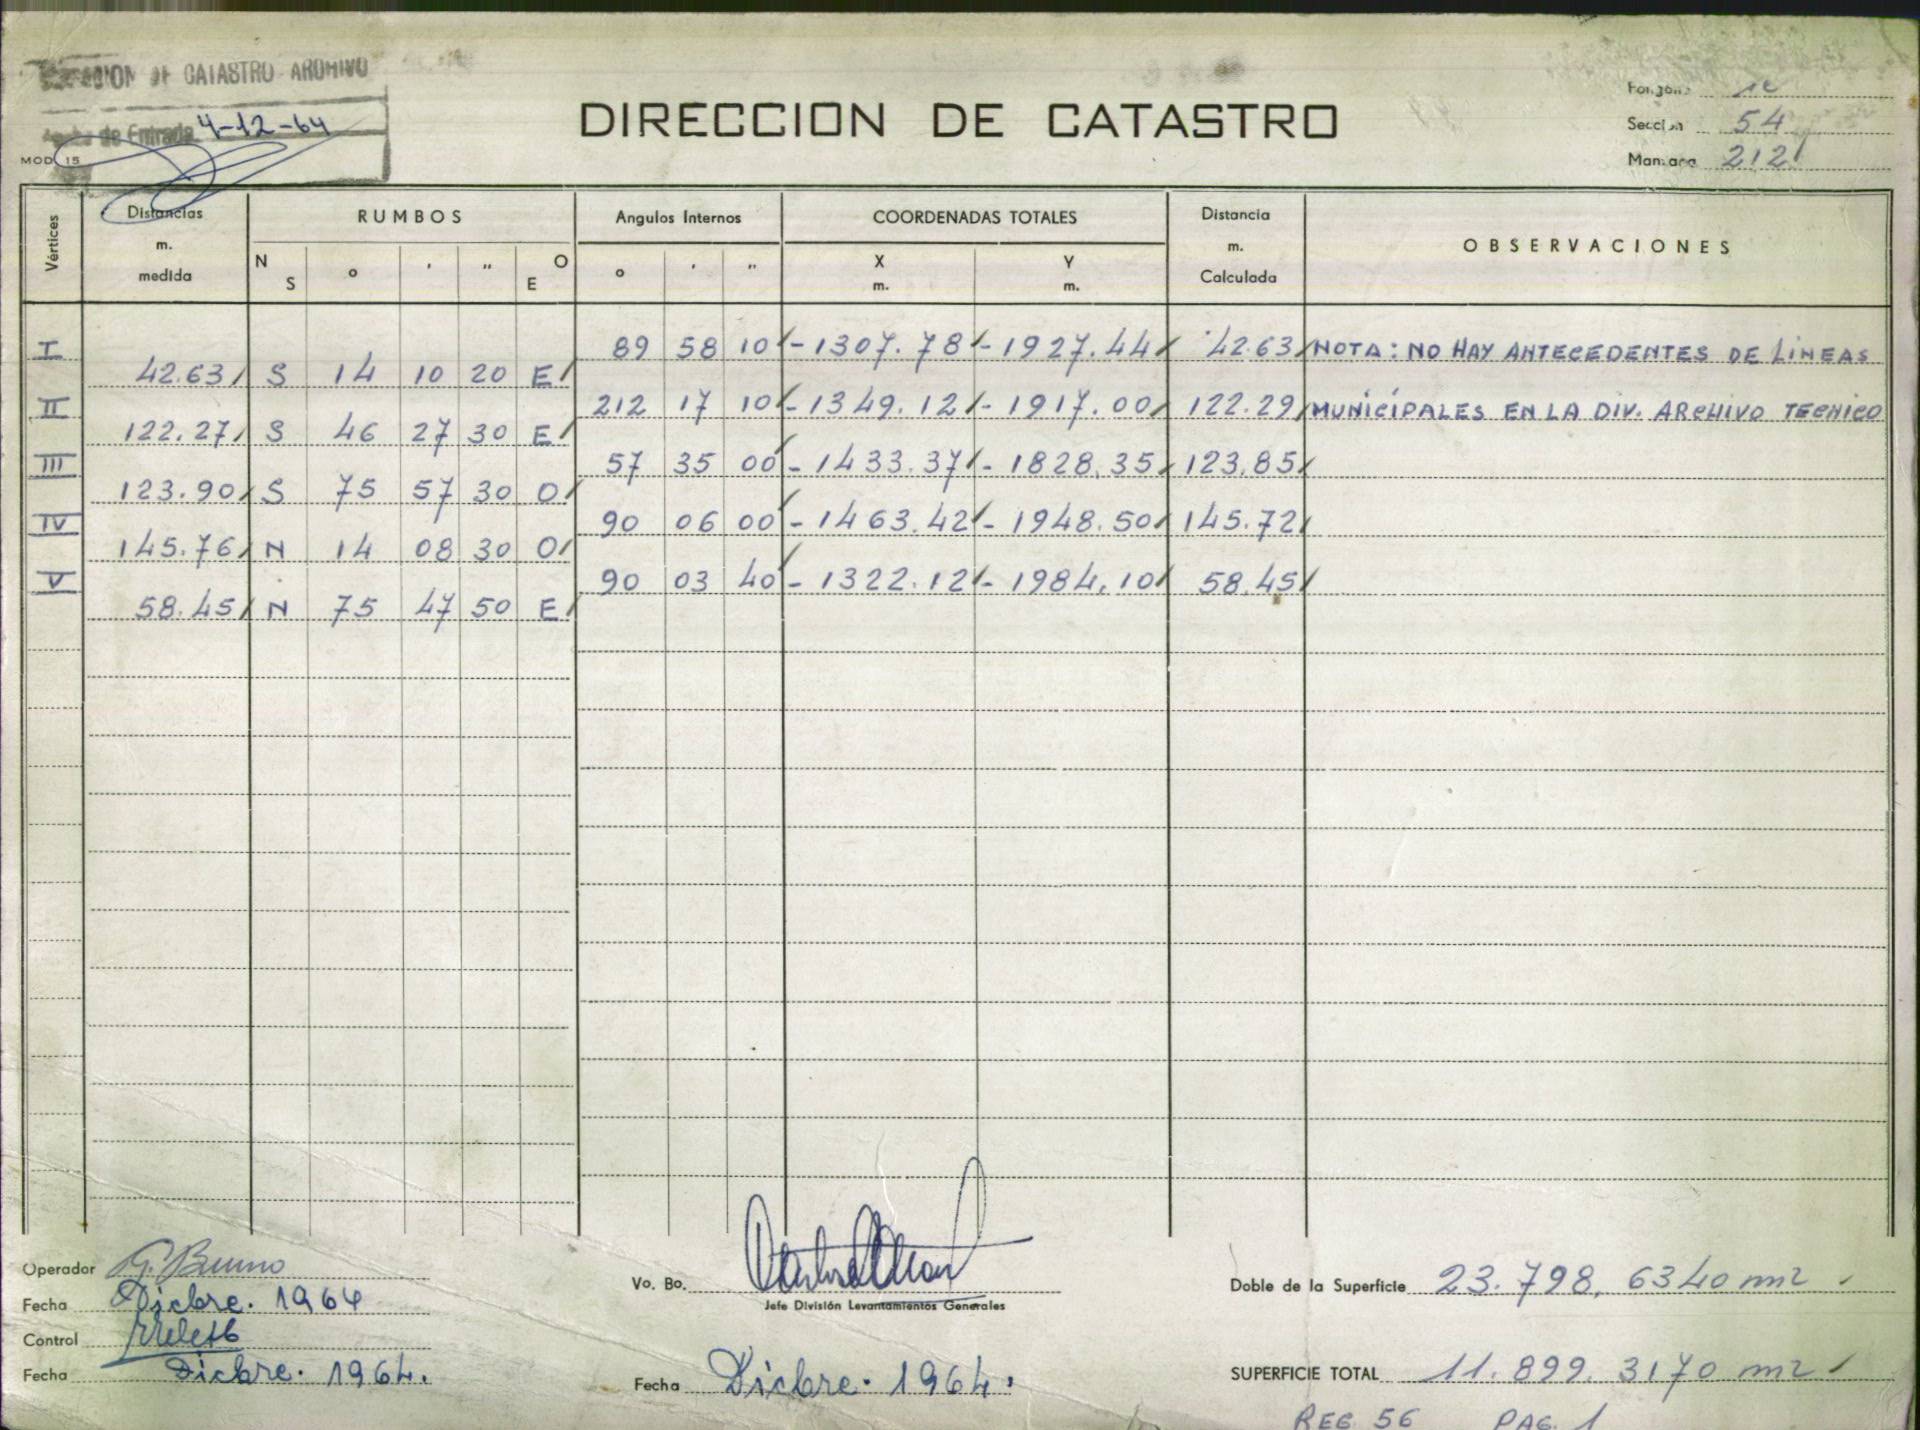 DE CATASTRO ARCHIVO
de Entrada 4-12-64
MOD 15
DIRECCION DE CATASTRO
Seccion 54
Manzana 212
Vértices
Distancias m. medida
RUMBOS
N S ° ' " O E
Angulos Internos
° ' "
COORDENADAS TOTALES
X m. Y m.
Distancia m. Calculada
OBSERVACIONES
I 89 58 10 -1307.78 -1927.44 42.63 NOTA: NO HAY ANTECEDENTES DE LINEAS
42.63 S 14 10 20 E
II 212 17 10 -1349.12 -1917.00 122.29 MUNICIPALES EN LA DIV. ARCHIVO TECNICO
122.27 S 46 27 30 E
III 57 35 00 -1433.37 -1828.35 123.85
123.90 S 75 57 30 O
IV 90 06 00 -1463.42 -1948.50 145.72
145.76 N 14 08 30 O
V 90 03 40 -1322.12 -1984.10 58.45
58.45 N 75 47 50 E
Operador G. Bruno
Fecha Dicbre. 1964
Control
Fecha Dicbre. 1964.
Vo. Bo.
Jefe División Levantamientos Generales
Fecha Dicbre. 1964.
Doble de la Superficie 23.798,6340 m2
SUPERFICIE TOTAL 11.899.3170 m2
REG 56 PAG. 1